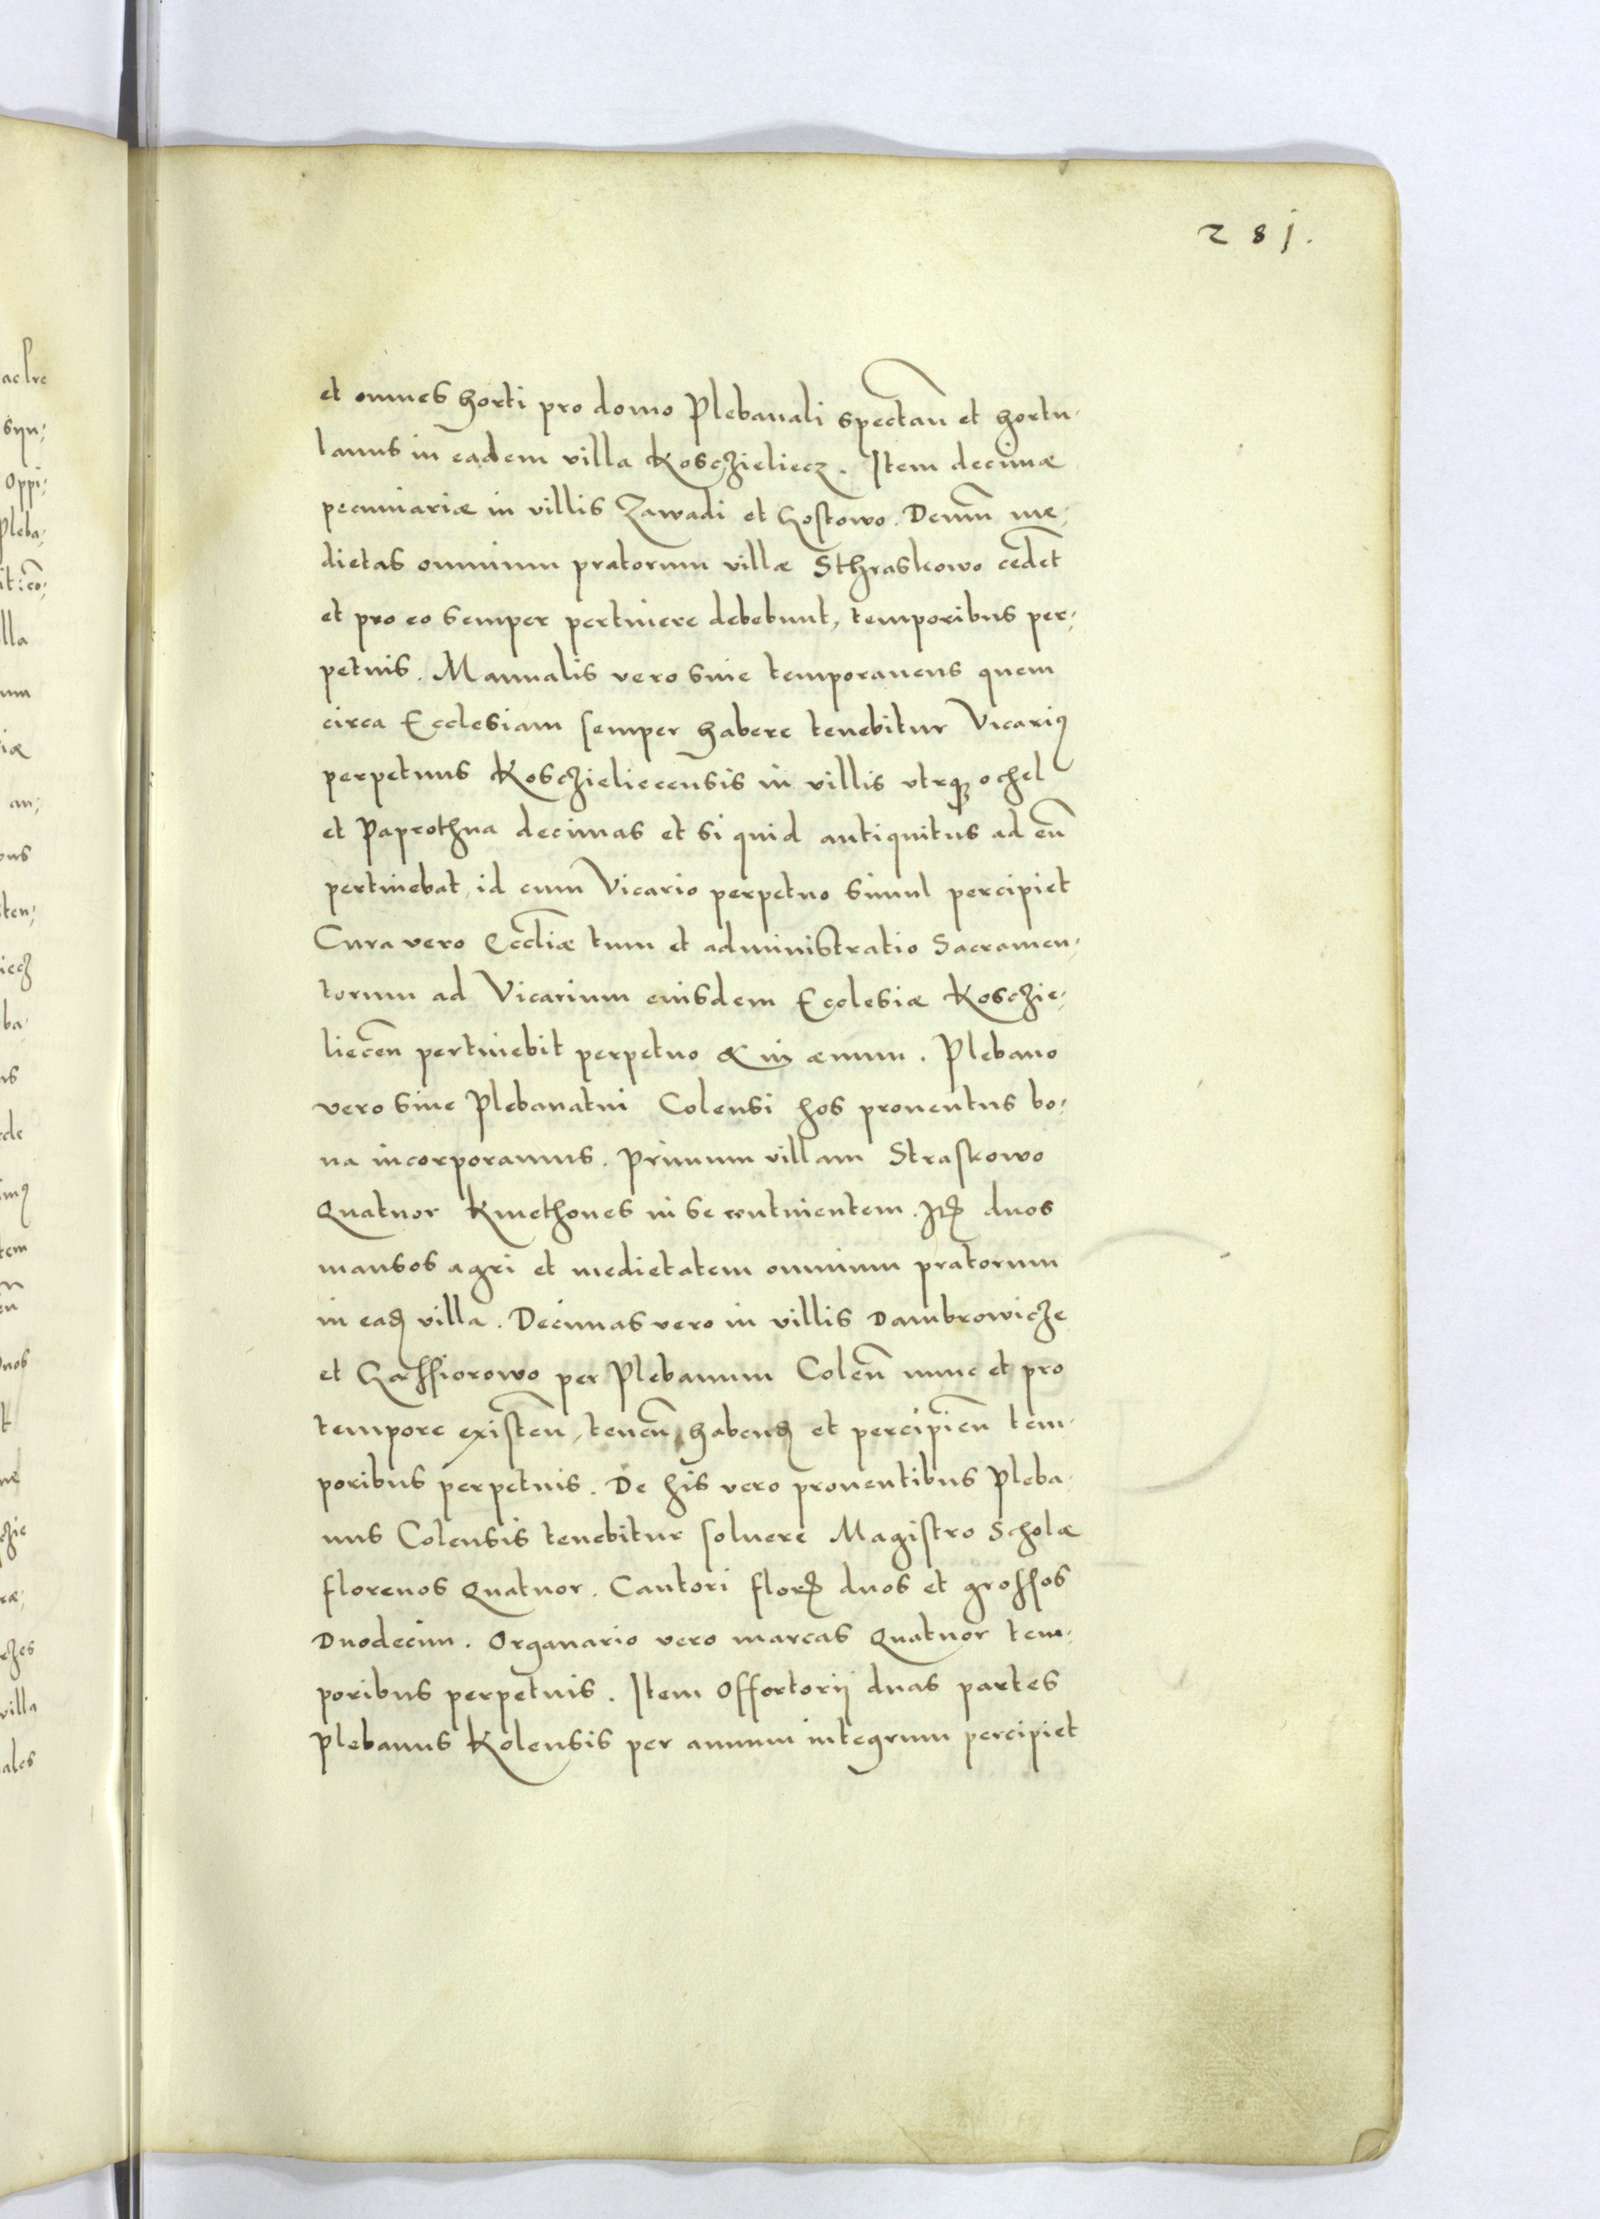 281.
et omnes horti pro domo Plebanali spectan̄ et hortu,
lanus in eadem villa Koschzieliecz. Item decimæ
pecuniariæ in villis Zawadi et Gostowo. Demū me,
dietas omnium pratorum villæ Sthraskowo cedēt
et pro eo semper pertinere debebunt, temporibus per,
petuis. Manualis vero siue temporaneus quem
circa Ecclesiam semper habere tenebitur Vicariꝰ
perpetuus Kosczieliecensis in villis vtrqꝫ ochel
et Paprothna decimas et si quid antiquitus ad eū
pertinebat, id cum Vicario perpetuo simul percipiet
Cura vero Eccłiæ tum et administratio Sacramen,
torum ad Vicarium eiusdem Ecclesiæ Kosczie,
liecēn pertinebit perpetuo & in æuum. Plebano
vero siue Plebanatui Colensi hos prouentus bo,
na incorporamus. Primum villam Straskowo
Quatuor Kmethones in se continentem. duos
mansos agri et medietatem omnium pratorum
in eaɖ villa. Decimas vero in villis Dambrowicze
et Gæssiorowo per Plebanum Colen̄ nunc et pro
tempore existen̄, tenen̄, habenɖ et percipien̄ tem,
poribus perpetuis. De his vero prouentibus Pleba,
nus Colensis tenebitur soluere Magistro Scholæ
florenos Quatuor. Cantori flor duos et grossos
Duodecim. Organario vero marcas Quatuor tem,
poribus perpetuis. Item Offortorij duas partes
Plebanus Kolensis per annum integrum percipiet